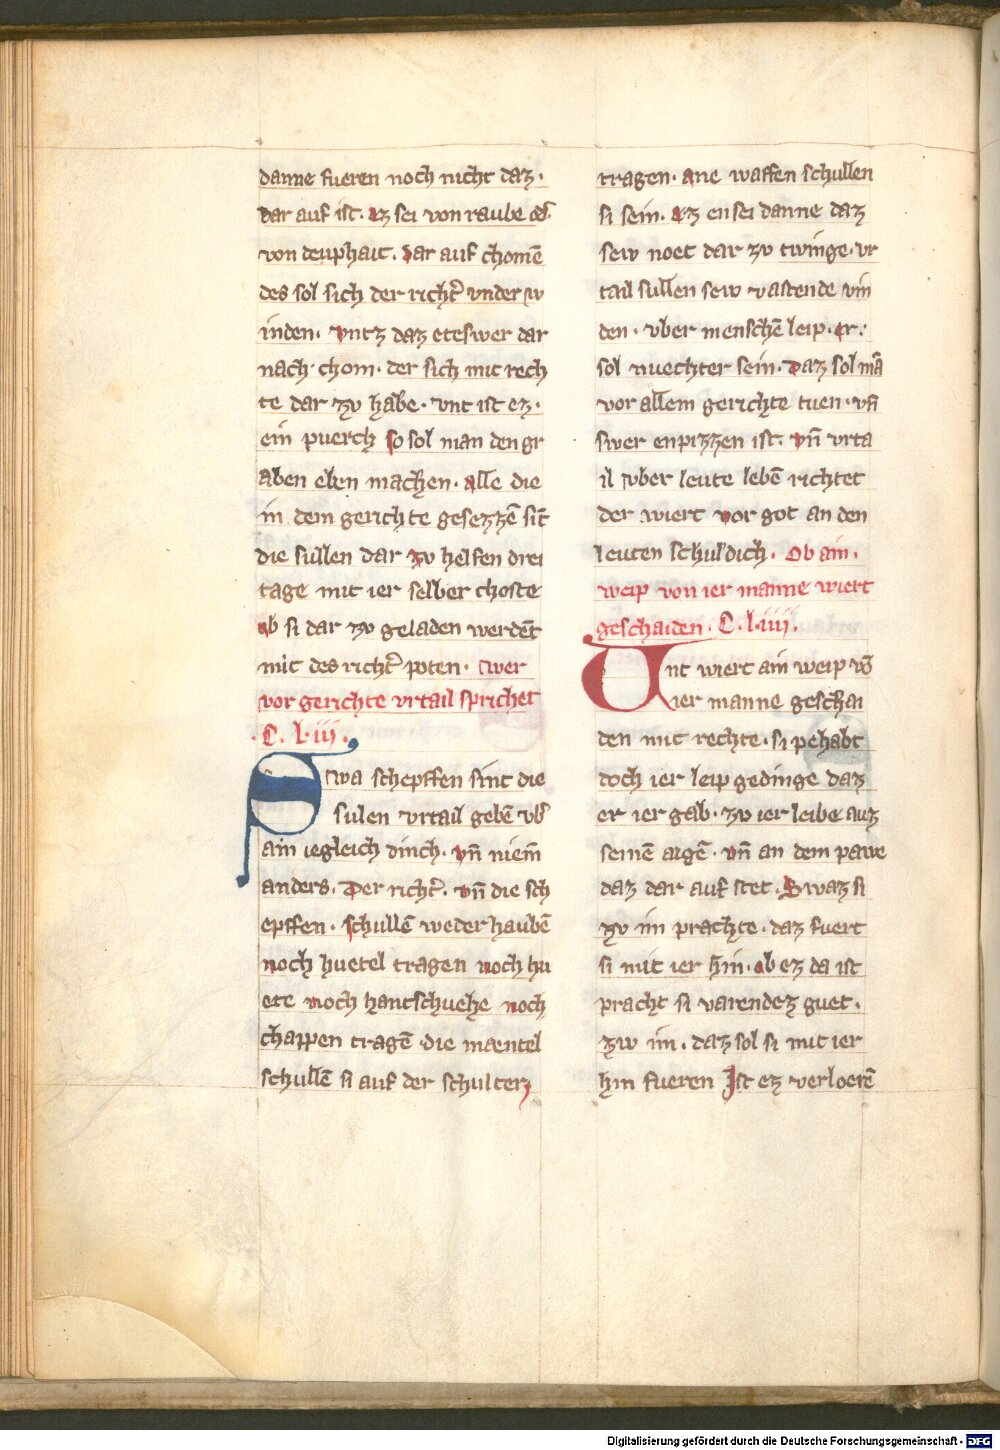 danne fueren noch nicht daz·
dar auf ist. ez sei von raube od̄.
von deuphait. dar auf chomē
des sol sich der richt̄ vnder w
inden. vntz daz eteswer dar
nach chom. der sich mit rech
te dar zv habe. vnt ist ez.
ein puerch so sol man den gr
aben eben machen. alle die
in dem gerichte gesezzē sīt
die sullen dar zv helfen drei
tage mit ier selber choste
ob si dar zv geladen werdēt
mit des richt̄ poten. Swer
vor gerichte vrtail sprichet
·C. l·iii.
Swa schepffen sint die
sulen vrtail gebē vb̄
ain iegleich dinch. vn̄ niem̄
anders. Der richt̄. vn̄ die sch
epffen. schullē weder haubē
noch huetel tragen noch hu
ete noch hantschuehe noch
chappen tragē die mæntel
schullē si auf der schulter
tragen. ane waffen schullen
si sein. ez en sei danne daz
sew noet dar zv twinge. vr
tail sullen sew vastende vin
den. vber menschē leip. er:
sol nuechter sein. Daz sol mā
vor allem gerichte tuen. vn̄
swer enpizzen ist. vn̄ vrta
il vber leute lebē richtet
der wiert vor got an den
leuten schuldich. Ob ain.
weip von ier manne wiert
geschaiden. C. l·iiii.
Vnt wiert ain weip vō
ier manne geschai
den mit rechte. si pehabt
doch ier leip gedinge daz
er ier gab. zv ier leibe auz
seinē aigē. vn̄ an dem pawe
daz dar auf stet. Swaz si
zv im prachte. daz fuert
si mit ier hin. ob ez da ist
pracht si varendez guet.
zw im. daz sol si mit ier
hin fueren Ist ez verloerē
Digitalisierung gefördert durch die Deutsche Forschungsgemeinschaft · DFG